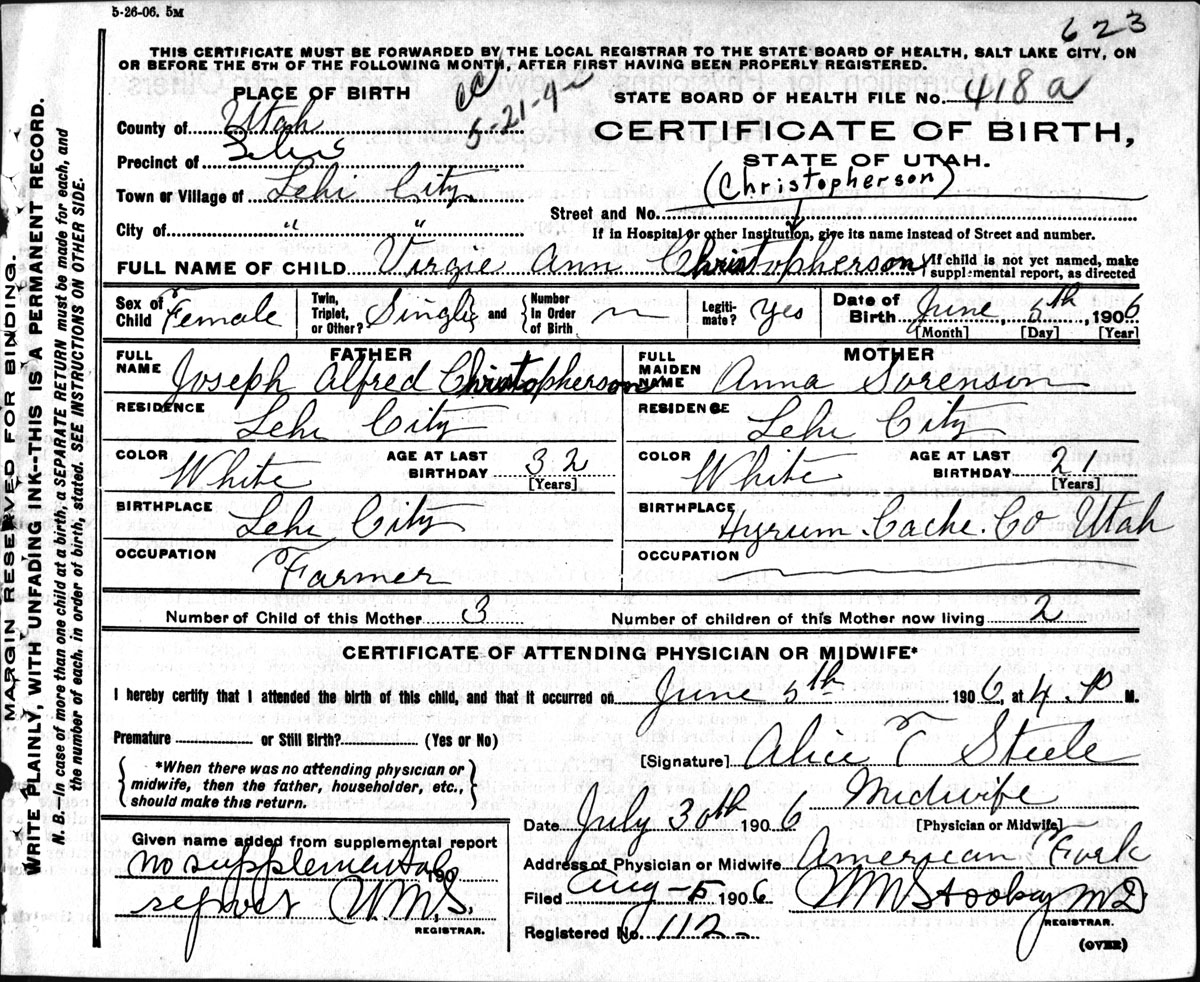 5-26-06. 5M
623
THIS CERTIFICATE MUST BE FORWARDED BY THE LOCAL REGISTRAR TO THE STATE BOARD OF HEALTH, SALT LAKE CITY, ON
OR BEFORE THE 5TH OF THE FOLLOWING MONTH, AFTER FIRST HAVING BEEN PROPERLY REGISTERED.
MARGIN RESERVED FOR BINDING.
WRITE PLAINLY, WITH UNFADING INK--THIS IS A PERMANENT RECORD.
N. B.--In case of more than one child at a birth, a SEPARATE RETURN must be made for each, and
the number of each. in order of birth, stated. SEE INSTRUCTIONS ON OTHER SIDE.
PLACE OF BIRTH
5-21-4
STATE BOARD OF HEALTH FILE No. 418a
County of Utah
CERTIFICATE OF BIRTH,
Precinct of
STATE OF UTAH.
(Christopherson)
Town or Village of Lehi City.
Street and No.
City of " "
If in Hospital or other Institution, give its name instead of Street and number.
FULL NAME OF CHILD Virgie Ann Christopherson
If child is not yet named, make
supplemental report, as directed
Sex of Child Female
Twin, Triplet, or Other? Single and
Number In Order of Birth
Legiti-mate? Yes
Date of Birth June, 5th, 1906
[Month] [Day] [Year]
FATHER
FULL NAME Joseph Alfred Christopherson
MOTHER
FULL MAIDEN NAME Anna Sorenson
RESIDENCE Lehi City
RESIDENCE Lehi City
COLOR White AGE AT LAST BIRTHDAY 32 [Years]
COLOR White AGE AT LAST BIRTHDAY 21 [Years]
BIRTHPLACE Lehi City
BIRTHPLACE Hyrum. Cache. Co Utah
OCCUPATION Farmer
OCCUPATION
Number of Child of this Mother 3
Number of children of this Mother now living 2
CERTIFICATE OF ATTENDING PHYSICIAN OR MIDWIFE*
I hereby certify that I attended the birth of this child, and that it occurred on June 5th 1906, at 4. P M.
Premature or Still Birth? (Yes or No)
[Signature] Alice T Steele
*When there was no attending physician or
midwife, then the father, householder, etc.,
should make this return.
Midwife
Date July 30th 1906 [Physician or Midwife]
Given name added from supplemental report
no supplemental 190
report W.M.S.
REGISTRAR.
Address of Physician or Midwife American Fork
Filed Aug-5 1906 WM Stookey MD
REGISTRAR.
Registered No. 112-
(OVER)